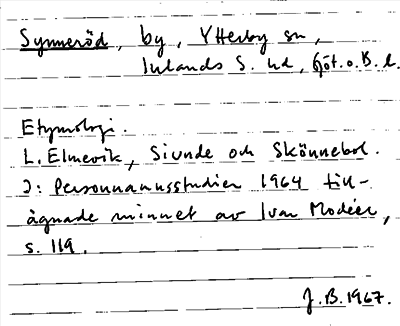 Synneröd, by, Ytterby sn,
Inlands S. hd, Göt.o.B.l.
Etymologi.
L. Elmevik, Siunde och Skönnebol.
I: Personnamnsstudier 1964 till-
ägnade minnet av Ivar Modéer,
s. 119.
J.B.1967.